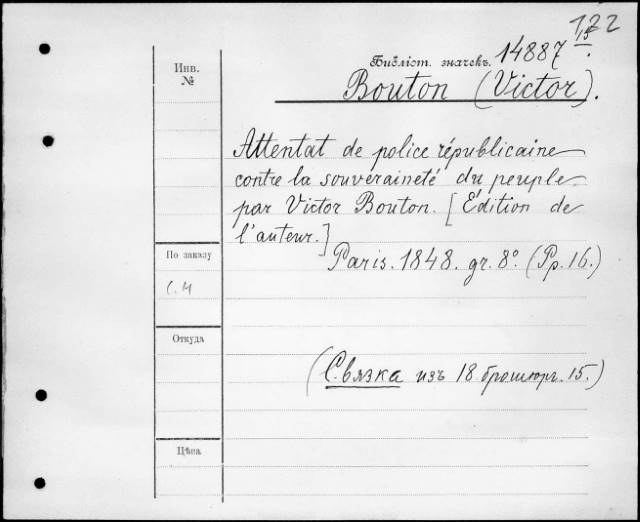 122
Инв.
№
Библіот. значекъ. 14887 15.
Bouton (Victor).
Attentat de police républicaine
contre la souveraineté du peuple
par Victor Bouton. [Édition de
l'auteur.]
Paris. 1848. gr. 8º. (Pp. 16.)
По заказу
Откуда
(Связка изъ 18 брошюръ. 15.)
Цѣна